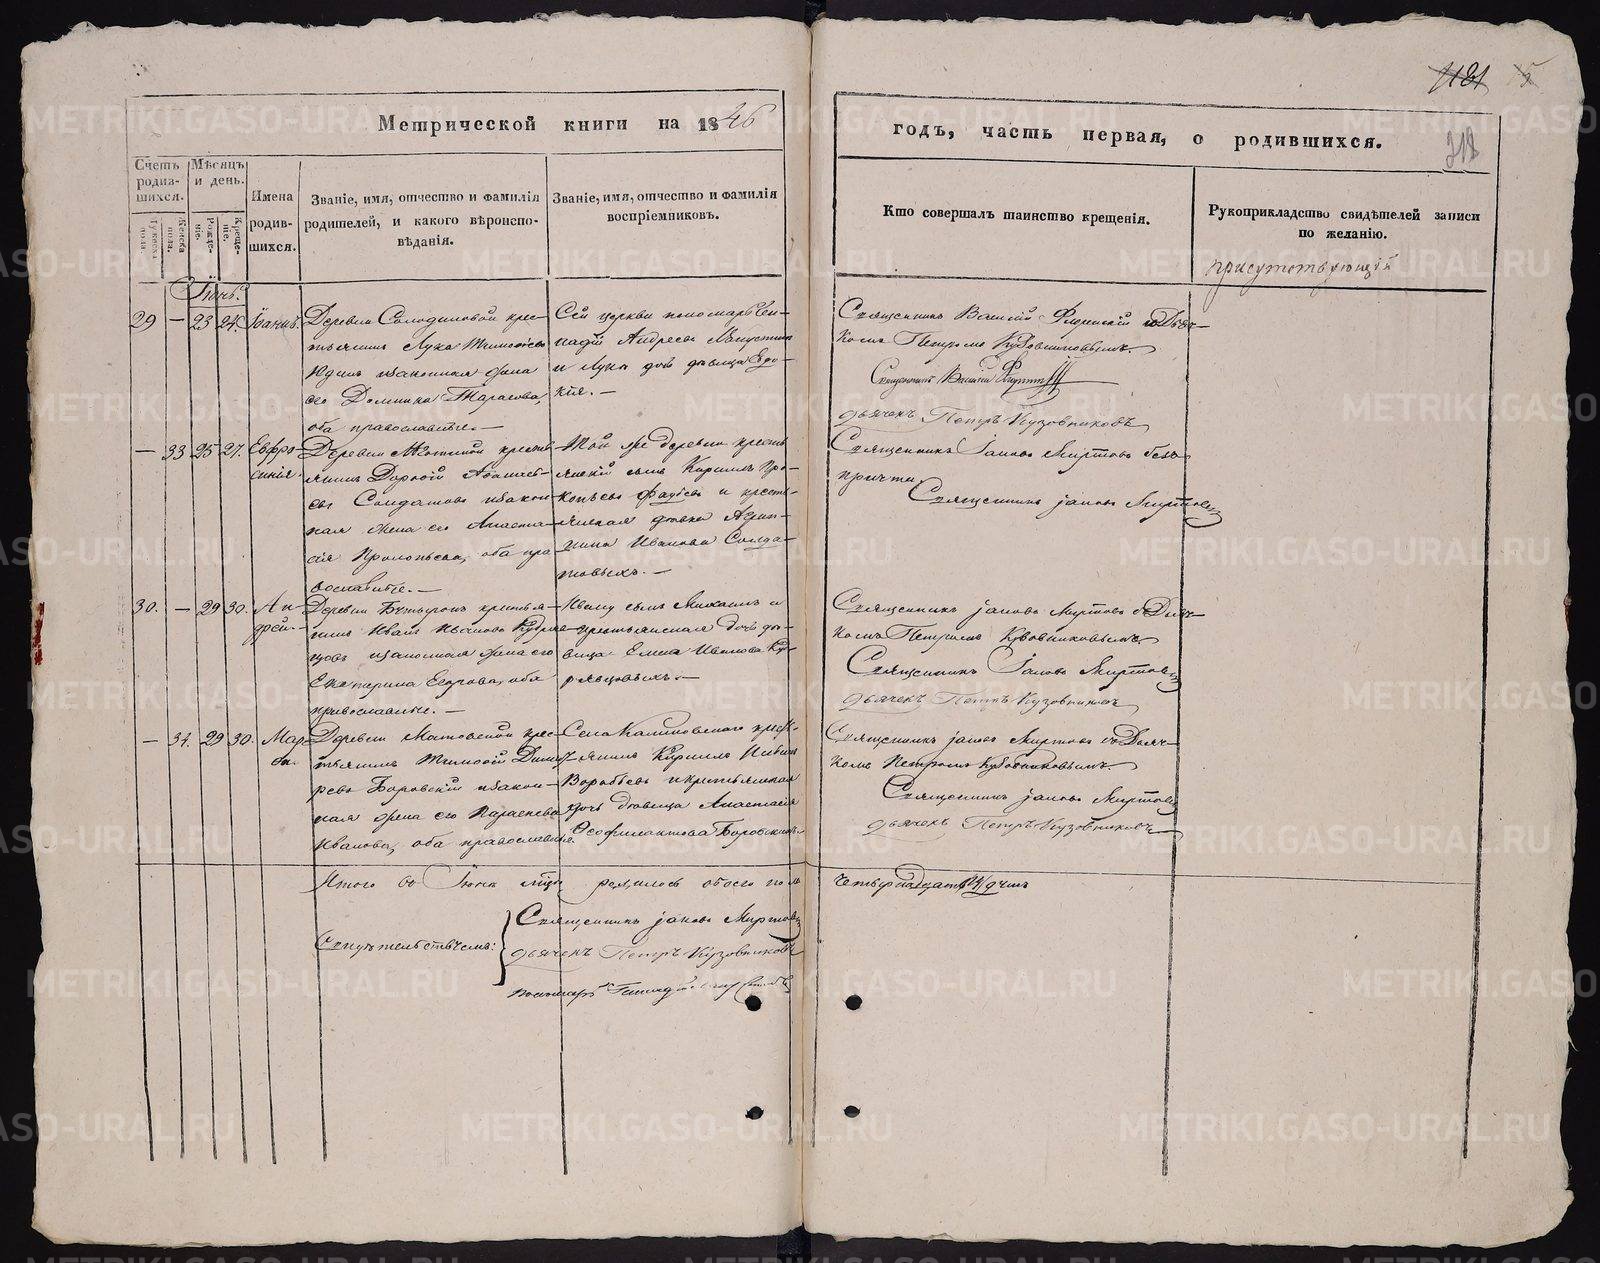 Метрической книги на 1846
годъ, часть первая, о родившихся.
1181
318
Счетъ родив-шихся.
Мѣсяцъ и день.
Имена родив-шихся.
Званіе, имя, отчество и фамилія родителей, и какого вѣроиспо-вѣданія.
Званіе, имя, отчество и фамилія воспріемниковъ.
Кто совершалъ таинство крещенія.
Рукоприкладство свидѣтелей записи по желанію.
Мужеска пола.
Женска пола.
Рожде-ніе.
Креще-ніе.
присутствующій
Іюнь.
29 — 23 24 Іоаннъ.
Деревни Солодиловой крес-
тьянинъ Лука
Юдинъ изаконная жена
его Домника Тарасова,
оба православные.—
Сей церкви пономарь Ген-
надій Андреевъ
и Луки дочь дѣвица Евдо-
кія.—
Священникъ Василій съ Дьяч-
комъ Петромъ Кузовниковымъ.
Священникъ Василій
дьячекъ Петръ Кузовниковъ
— 33 25 27. Евфро-
синія.
Деревни крестья-
нинъ Дорофей
евъ Солдатовъ изакон-
ная жена его Анаста-
сія Прокопьева, оба пра-
вославные.—
Той же деревни кресть-
янскій сынъ Кириллъ Про-
копьевъ и кресть-
янская дѣвка Агрип-
пина Иванова Солда-
товыхъ.—
Священникъ Іаковъ Миртовъ безъ
причта
Священникъ Іаковъ Миртовъ
30. — 29 30. Ан-
дрей.
Деревни крестья-
нинъ Иванъ Ивановъ Кудря-
цовъ изаконная жена его
Екатерина Егорова, оба
православные.—
сынъ Михаилъ и
крестьянская дочь дѣ-
вица Елена Иванова Ку-
рявцовыхъ.—
Священникъ Іаковъ Миртовъ съ Дьяч-
комъ Петромъ Кузовниковымъ
Священникъ Іаковъ Миртовъ
дьячекъ Петръ Кузовниковъ
— 34. 29 30. Мар-
ѳа.
Деревни крес-
тьянинъ Тимофей Дими
ревъ Боровскій изакон-
ная жена его Параскева
Иванова, оба православные.
Села Калиновскаго крест-
янинъ Кириллъ Ивановъ
Воробьевъ и крестьянская
дочь дѣвица Анастасія
Ѳеофилактова Боровскихъ.
Священникъ Іаковъ Миртовъ съ Дьяч-
комъ Петромъ Кузовниковымъ
Священникъ Іаковъ Миртовъ
дьячекъ Петръ Кузовниковъ
Итого въ Іюнѣ м-цѣ родилось обоего пола
четырнадцать /14/ душъ
Свидѣтельствуемъ:
Священникъ Іаковъ Миртовъ
дьячекъ Петръ Кузовниковъ
пономарь Геннадій
METRIKI.GASO-URAL.RU